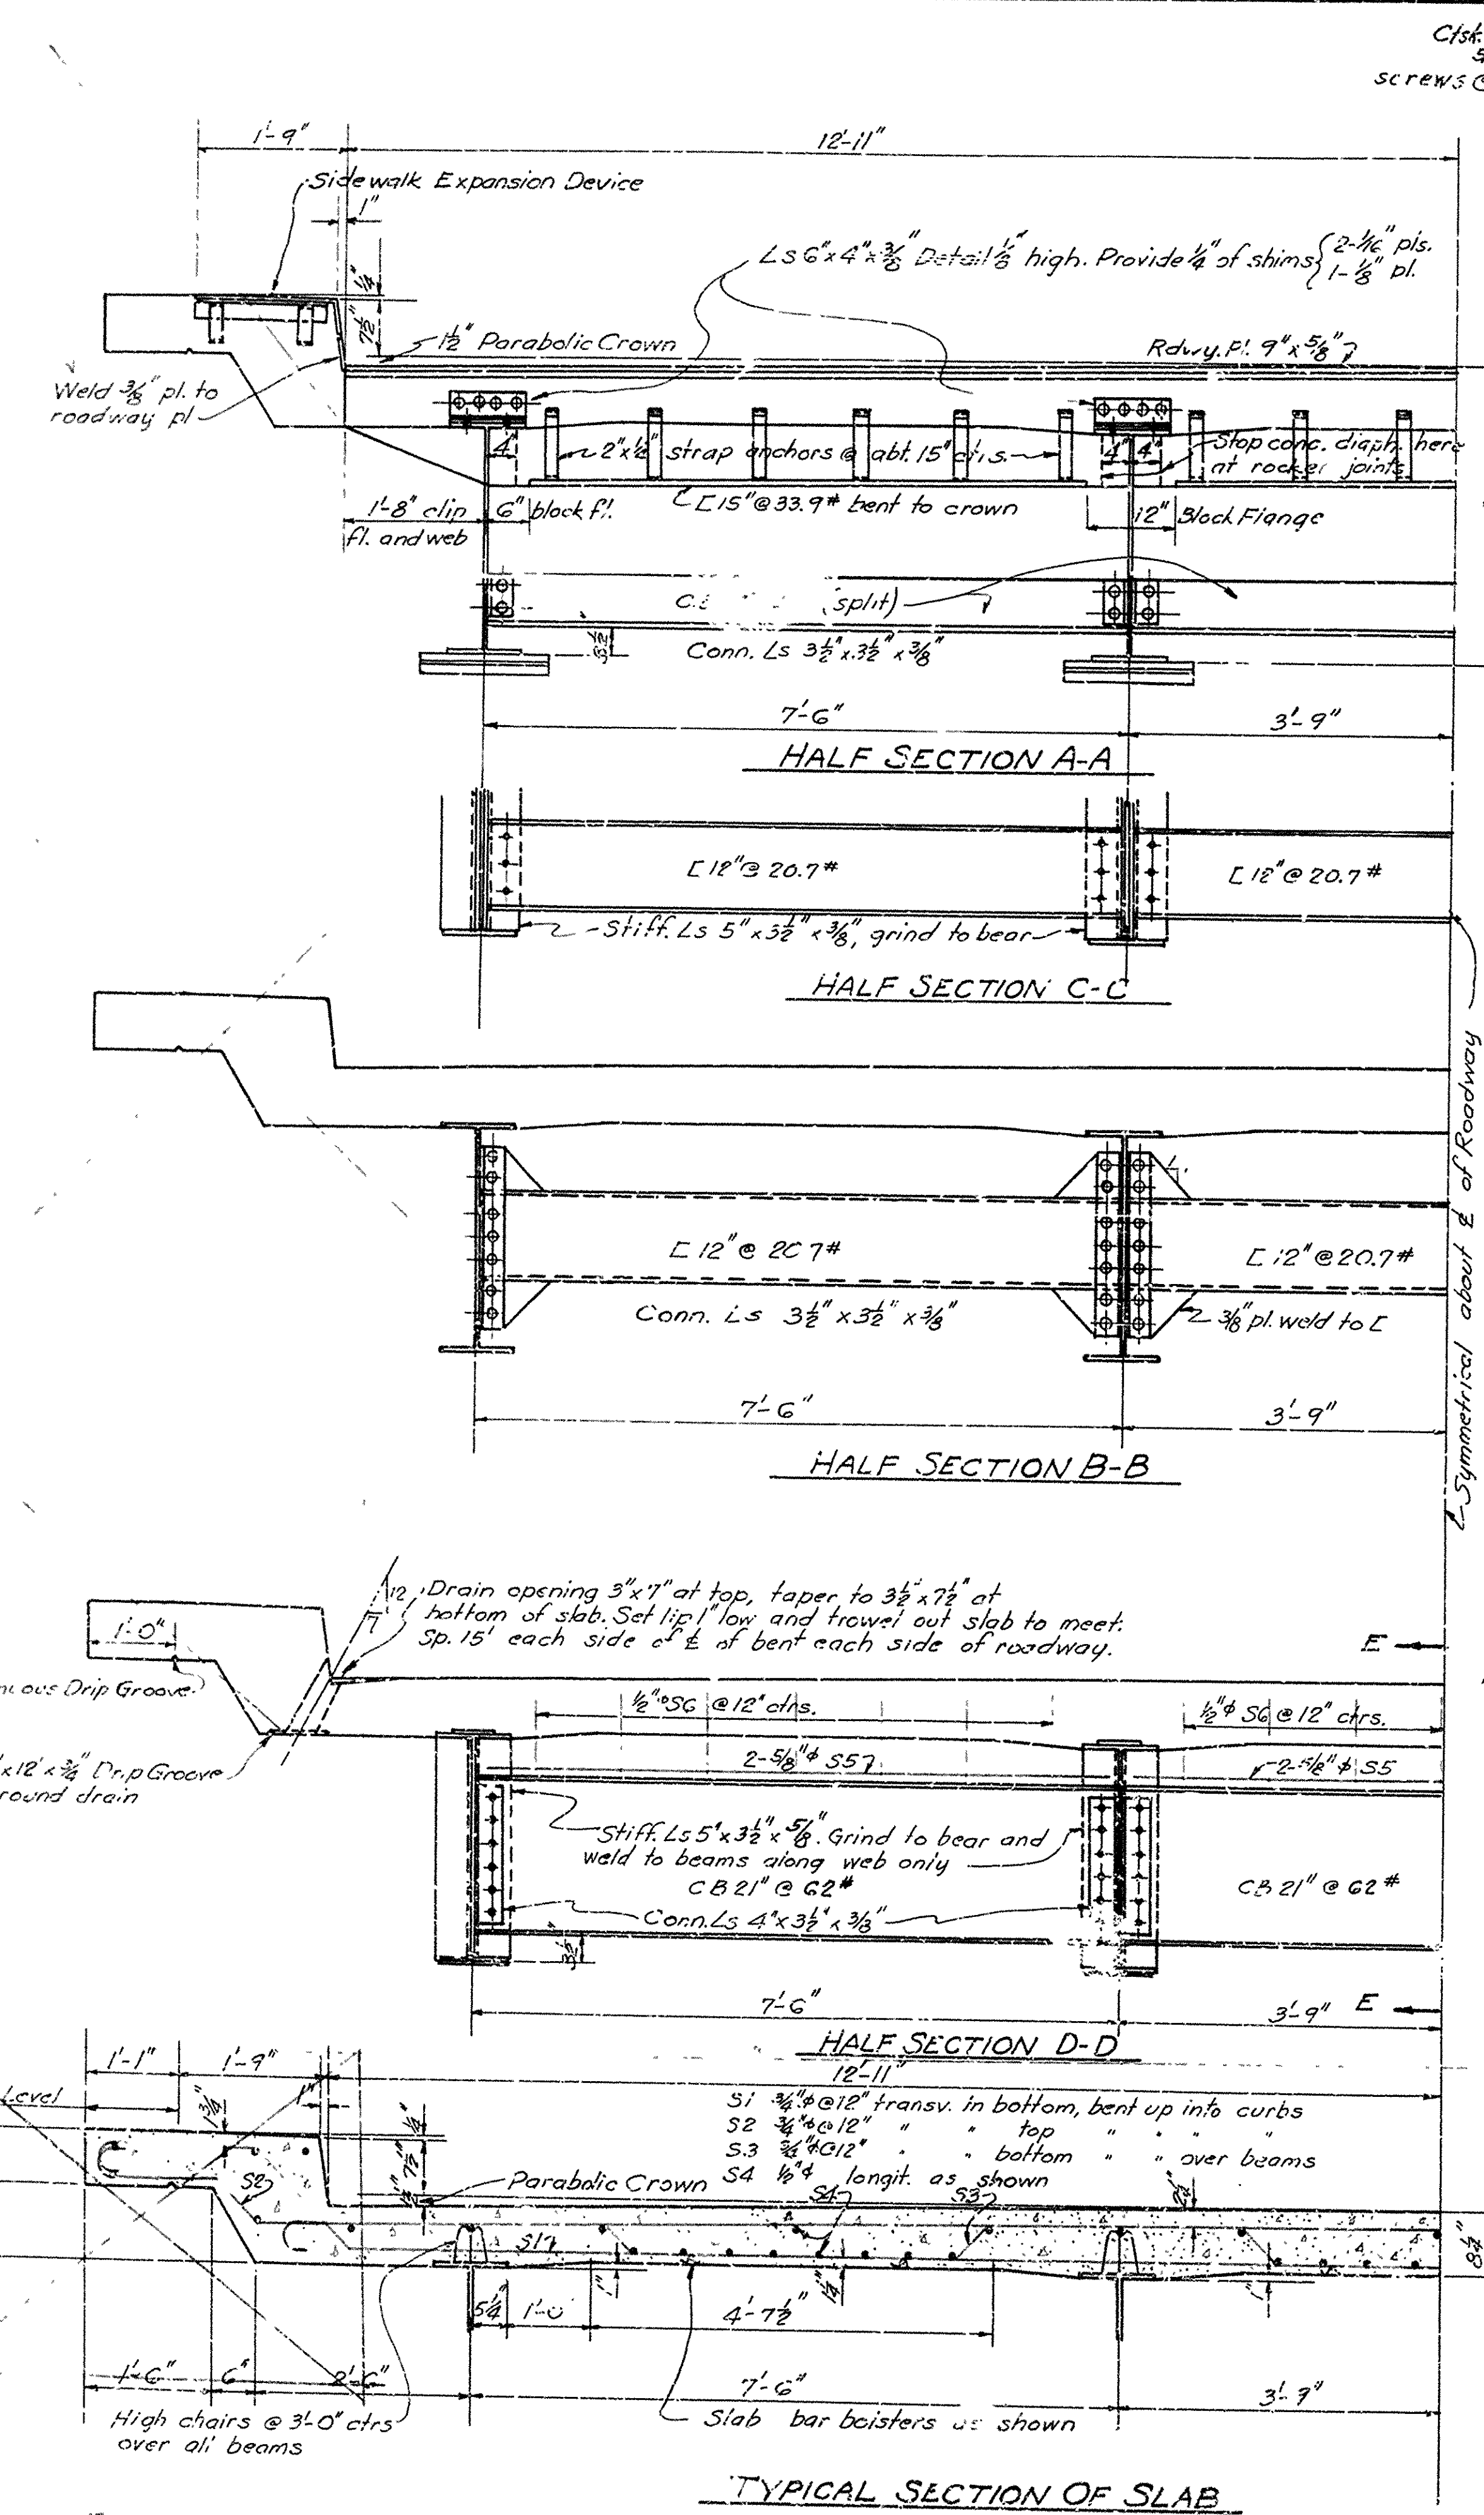 Ctsk.
screws
1'-9"
12'-11"
Sidewalk Expansion Device
1"
Ls 6"x4"x3/8" Detail 1/8" high. Provide 1/4" of shims { 2-1/16" pls.
1-1/8" pl.
1/4"
7 1/2"
1 1/2" Parabolic Crown
Rdwy. Pl. 9"x5/8"
Weld 3/8" pl. to
roadway pl
4"
2"x1/2" strap anchors @ abt. 15" ctrs.
4" 4"
Stop conc. diaph. here
at rocker joints
1'-8" clip
fl. and web
6" block fl.
[ 15" @ 33.9# bent to crown
12" Block Flange
(split)
3 1/2"
Conn. Ls 3 1/2"x3 1/2"x3/8"
7'-6"
3'-9"
HALF SECTION A-A
[ 12" @ 20.7#
[ 12" @ 20.7#
Stiff. Ls 5"x3 1/2"x3/8", grind to bear
HALF SECTION C-C
[ 12" @ 20 7#
[ 12" @ 20.7#
Conn. Ls 3 1/2"x3 1/2"x3/8"
3/8" pl. weld to [
7'-6"
3'-9"
HALF SECTION B-B
Symmetrical about ℄ of Roadway
12
7
Drain opening 3"x7" at top, taper to 3 1/2"x7 1/2" at
bottom of slab. Set lip 1" low and trowel out slab to meet.
Sp. 15' each side of ℄ of bent each side of roadway.
1'-0"
E
Drip Groove
1/2"φ S6 @ 12" ctrs.
1/2"φ S6 @ 12" ctrs.
x12"x3/4" Drip Groove
round drain
2-5/8"φ S5
2-5/8"φ S5
Stiff. Ls 5"x3 1/2"x5/8". Grind to bear and
weld to beams along web only
CB 21" @ 62#
CB 21" @ 62#
Conn. Ls 4"x3 1/2"x3/8"
3 1/2"
7'-6"
3'-9"
E
HALF SECTION D-D
1'-1"
1'-9"
12'-11"
Level
1"
1 3/4"
1/4"
7 1/2"
1 1/2"
S1 3/4"φ @ 12" transv. in bottom, bent up into curbs
S2 3/4"φ @ 12" " " top " " " "
S3 3/4"φ @ 12" " " bottom " " over beams
S4 1/2"φ longit. as shown
Parabolic Crown
S2
S4
S3
S1
1"
1 1/4"
1"
8 1/2"
5 1/4
1'-0
4'-7 1/2"
1'-6"
6"
2'-6"
7'-6"
High chairs @ 3'-0" ctrs
over all beams
Slab bar bolsters as shown
TYPICAL SECTION OF SLAB